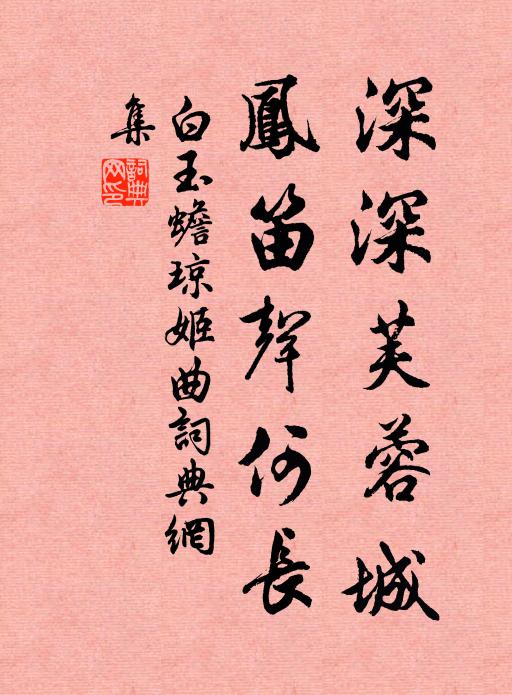 深深芙蓉城
鳳笛聲何長
白玉蟾琼姬曲詞典網
集
詞典
网印